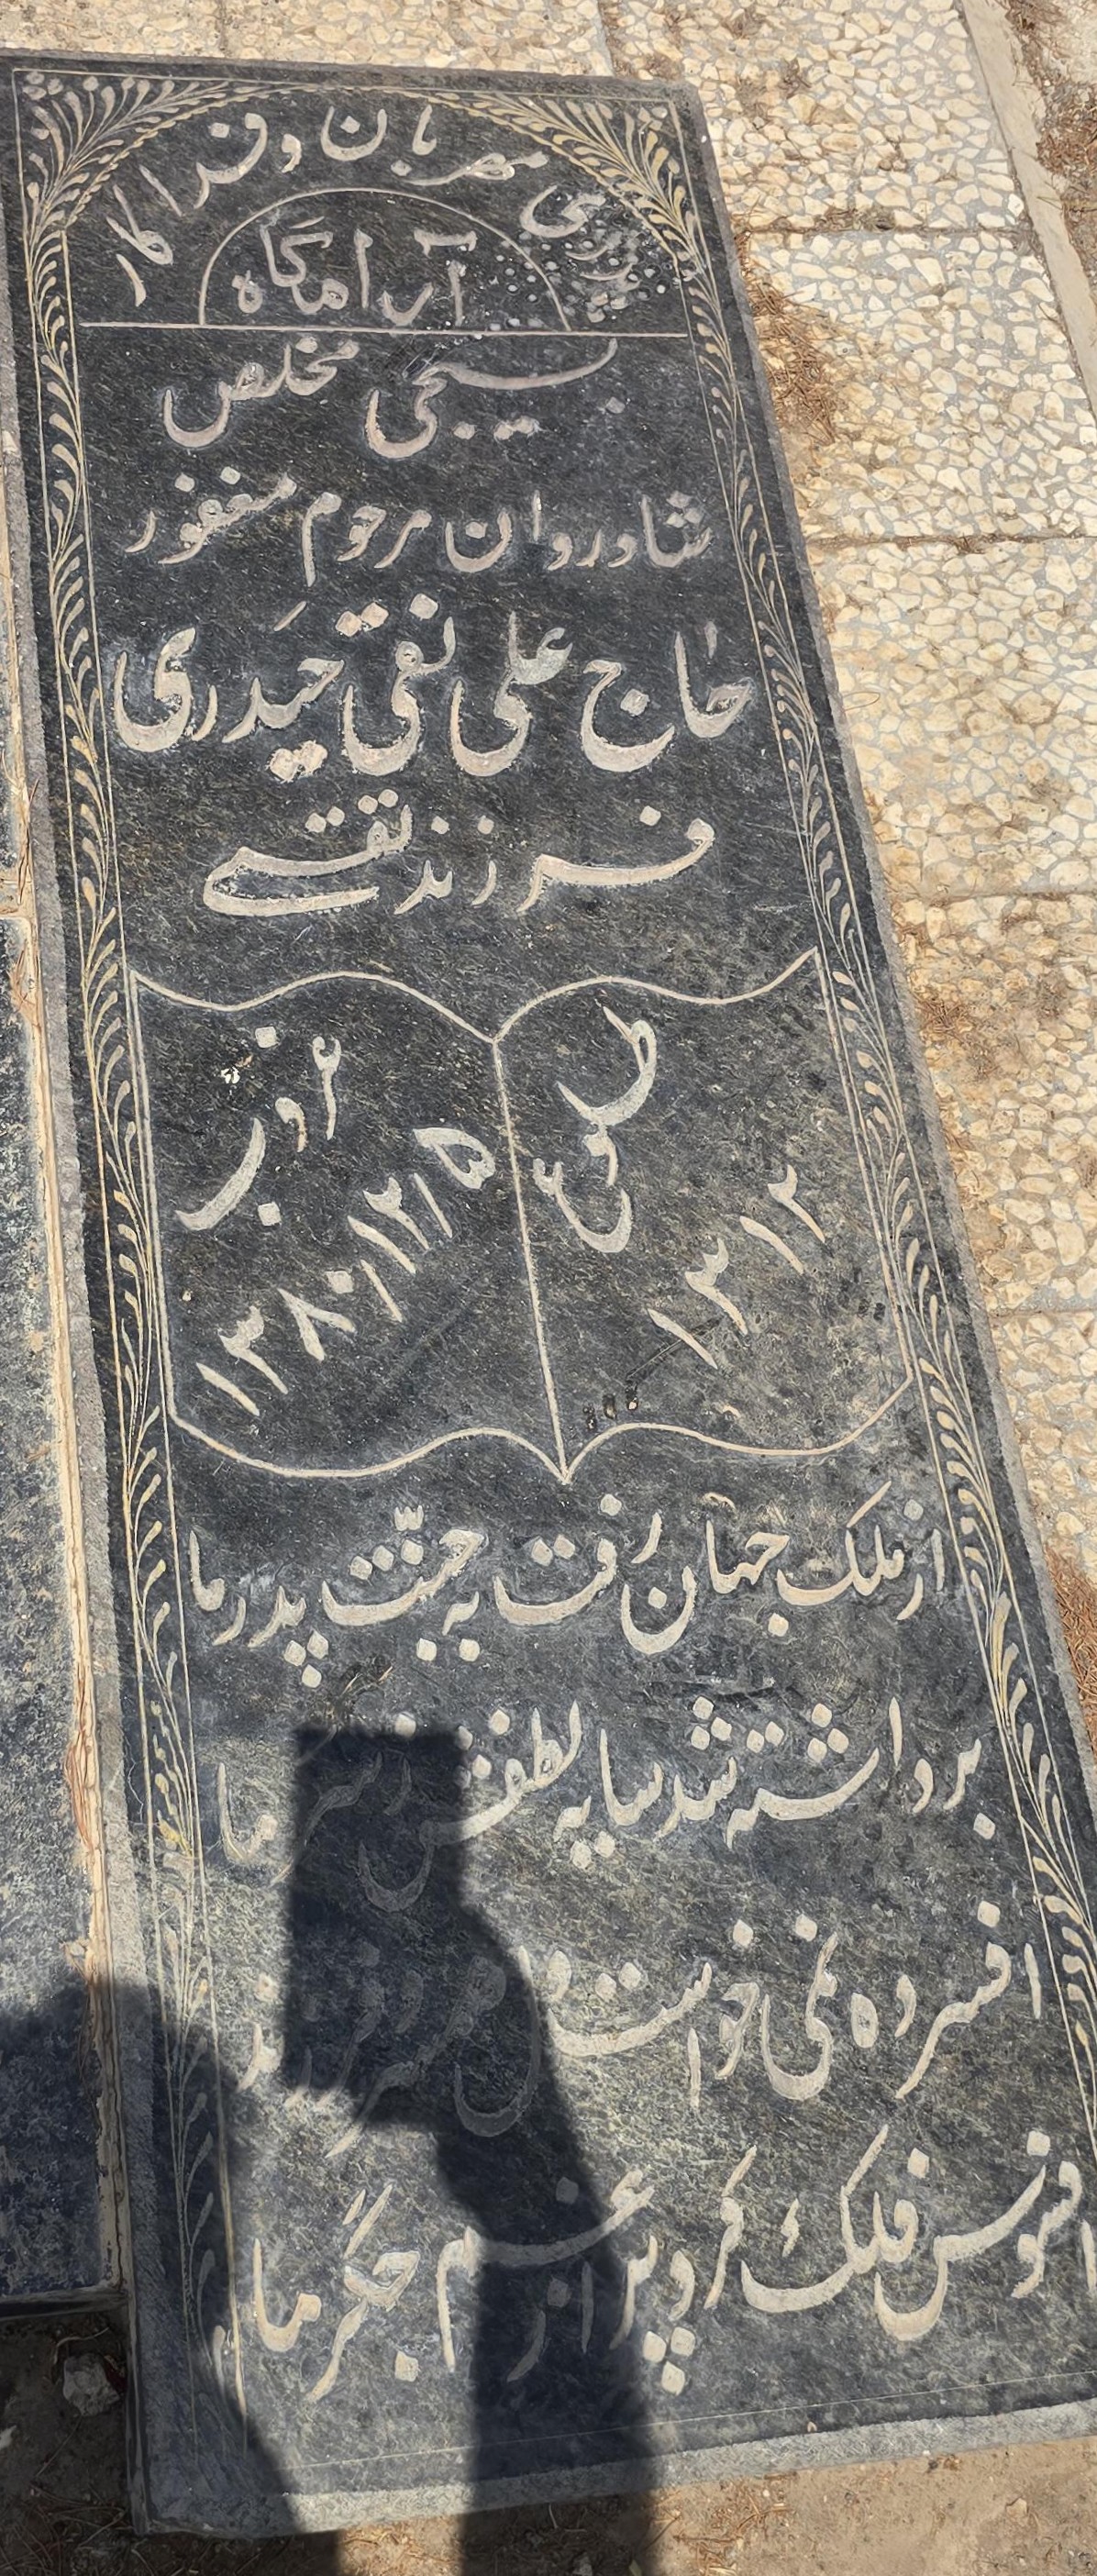 پدری مهربان و فداکار
آرامگاه
بسیجی مخلص
شادروان مرحوم مغفور
حاج علی نقی حیدری
فرزند تقی
طلوع
۱۳۱۲
غروب
۱۳۸۰/۱۲/۱۵
از ملک جهان رفت به جنّت پدر ما
برداشته شد سایه لطفش ز سر ما
افسرده نمی‌خواست
افسوس فلک کرد پر از غم جگر ما